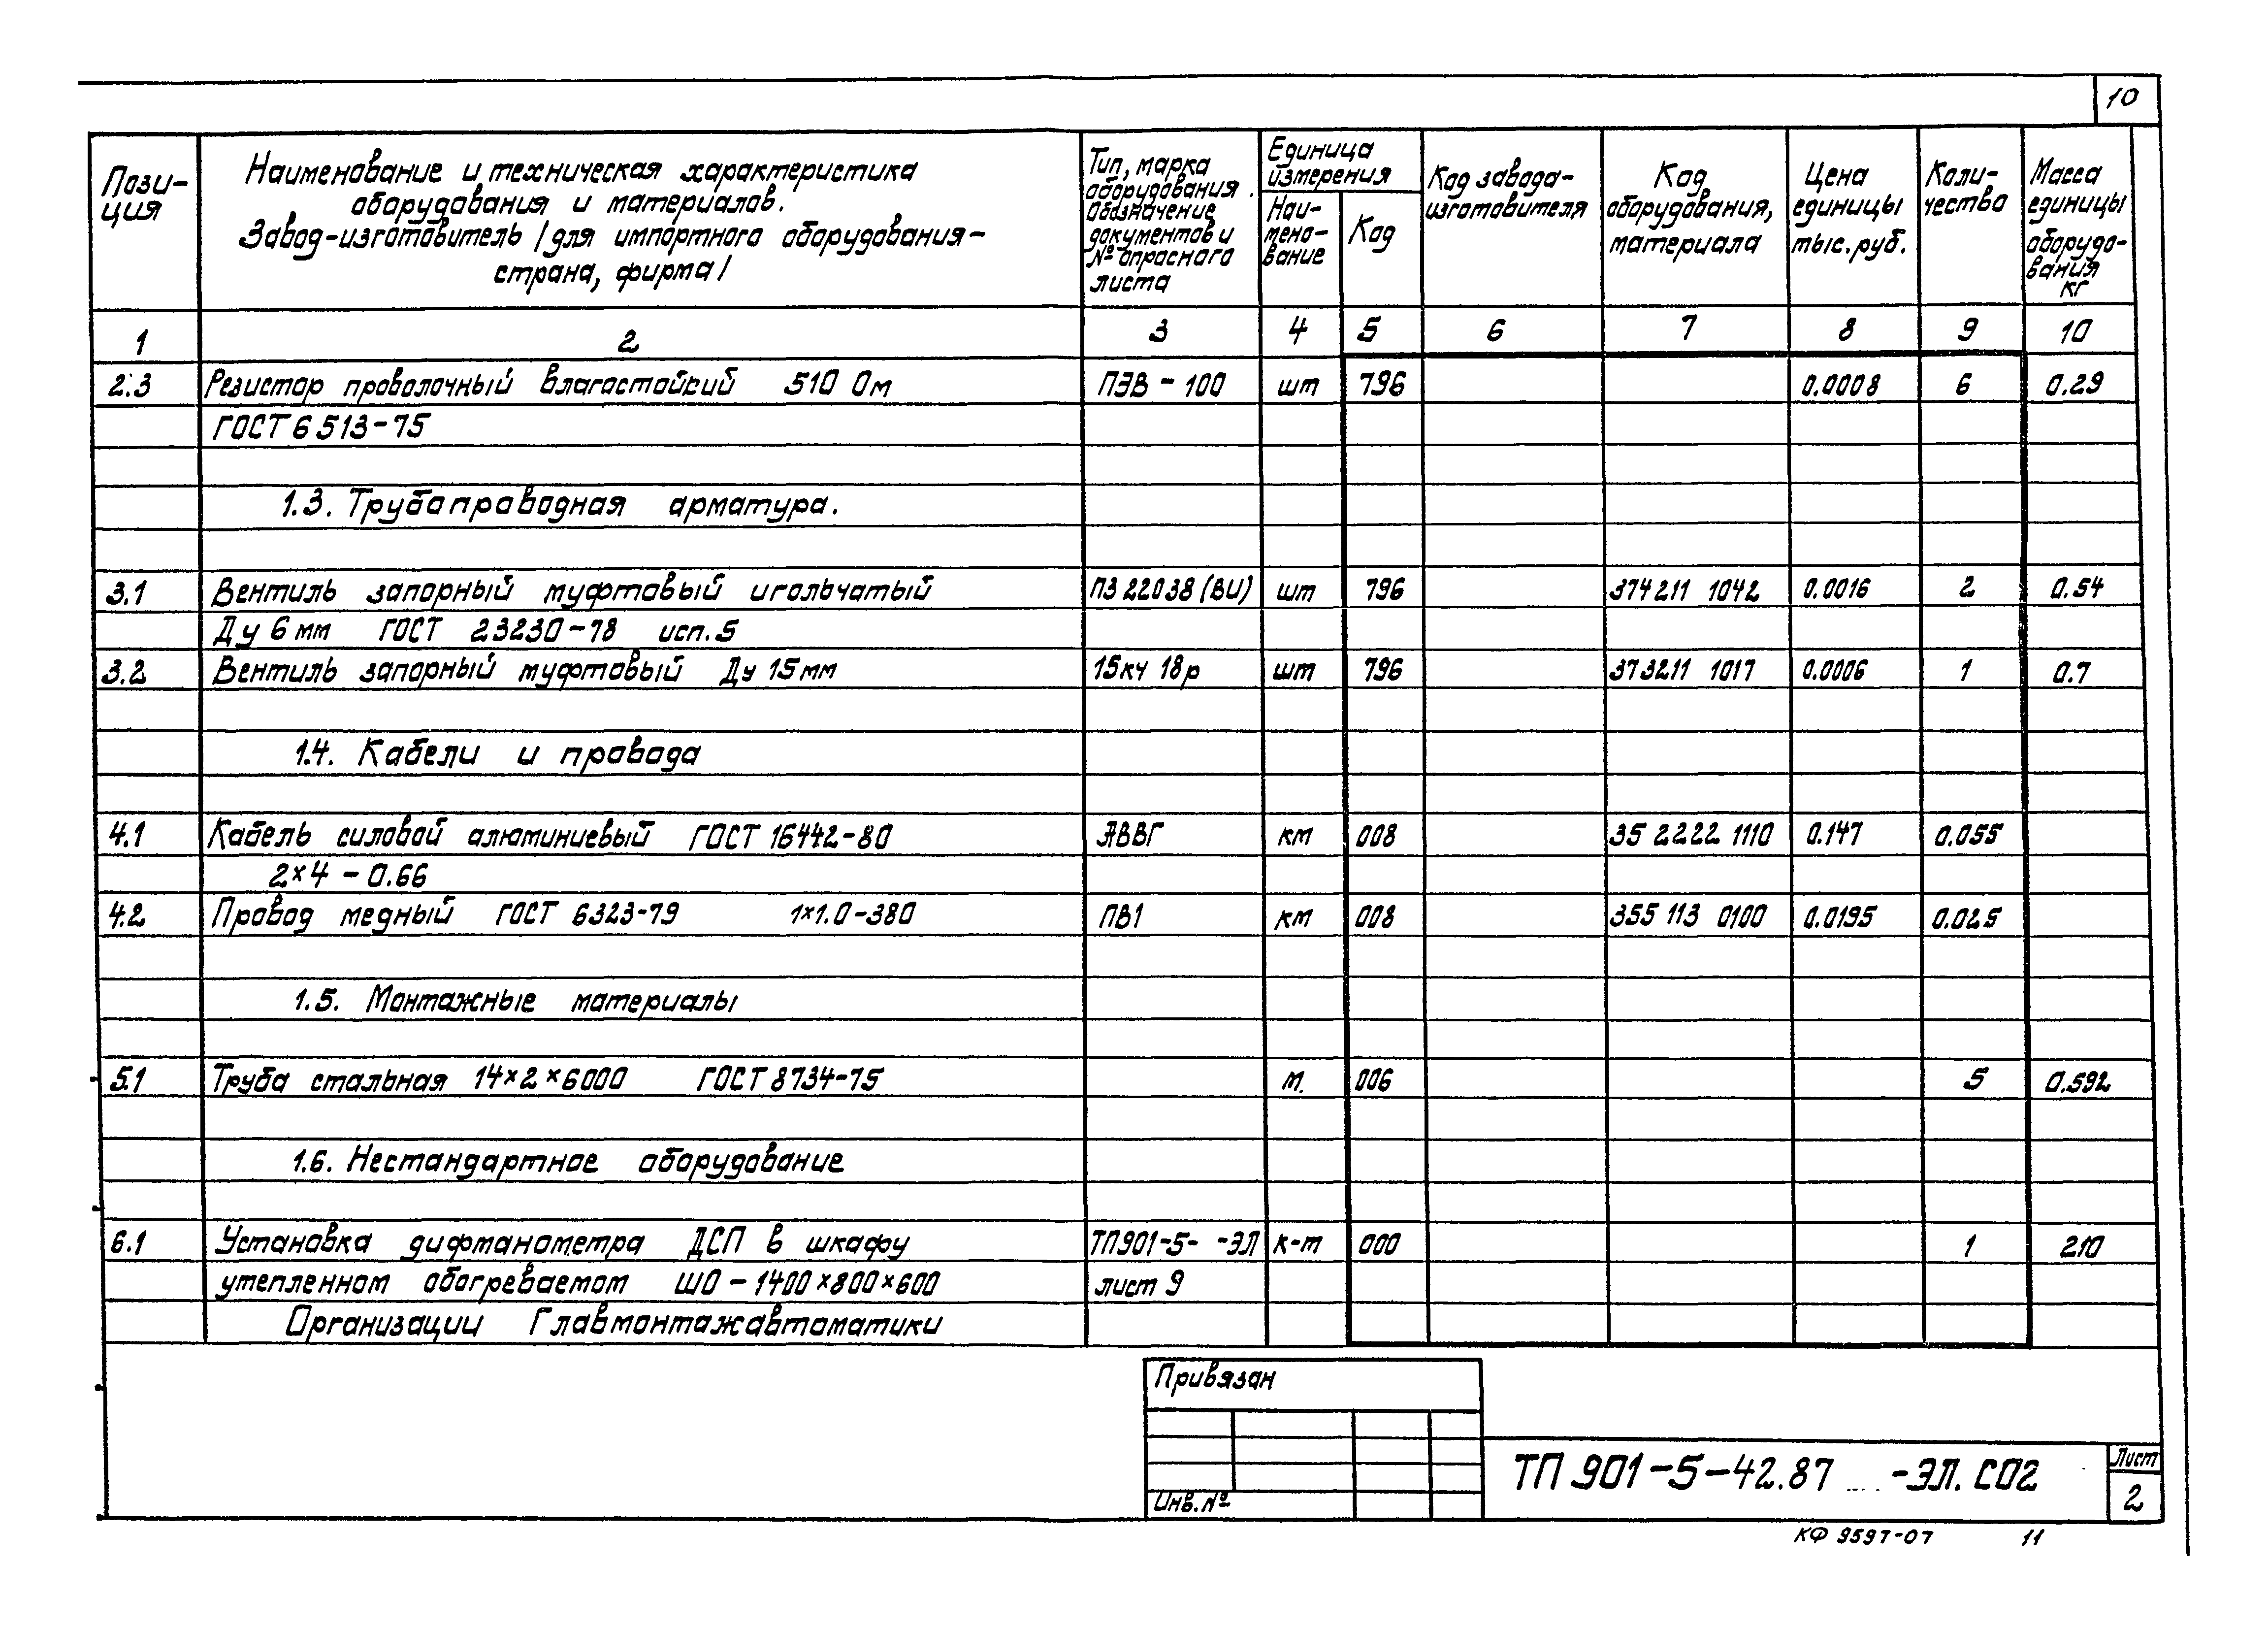 10
Пози-
ция
Наименование и техническая характеристика
оборудования и материалов.
Завод-изготовитель /для импортного оборудования-
страна, фирма/
Тип, марка
оборудования.
Обозначение
документов и
№ опросного
листа
Единица
измерения
Наи-
мено-
вание
Код
Код завода-
изготовителя
Код
оборудования,
материала
Цена
единицы
тыс.руб.
Коли-
чество
Масса
единицы
оборудо-
вания
кг
1 2 3 4 5 6 7 8 9 10
2.3 Резистор проволочный влагостойкий 510 Ом ПЭВ - 100 шт 796 0.0008 6 0.29
ГОСТ 6513-75
1.3. Трубопроводная арматура.
3.1 Вентиль запорный муфтовый игольчатый ПЗ 22038 (ВИ) шт 796 374211 1042 0.0016 2 0.54
Ду 6 мм ГОСТ 23230-78 исп. 5
3.2 Вентиль запорный муфтовый Ду 15 мм 15кч 18р шт 796 373211 1017 0.0006 1 0.7
1.4. Кабели и провода
4.1 Кабель силовой алюминиевый ГОСТ 16442-80 АВВГ км 008 35 2222 1110 0.147 0.055
2×4 - 0.66
4.2 Провод медный ГОСТ 6323-79 1×1.0-380 ПВ1 км 008 355 113 0100 0.0195 0.025
1.5. Монтажные материалы
5.1 Труба стальная 14×2×6000 ГОСТ 8734-75 м. 006 5 0.592
1.6. Нестандартное оборудование
6.1 Установка дифманометра ДСП в шкафу ТП901-5- -ЭЛ к-т 000 1 210
утепленном обогреваемом ШО - 1400×800×600 лист 9
Организации Главмонтажавтоматики
Привязан
Инв. №
ТП 901-5-42.87 -ЭЛ. СО2
Лист
2
КФ 9597-07 11